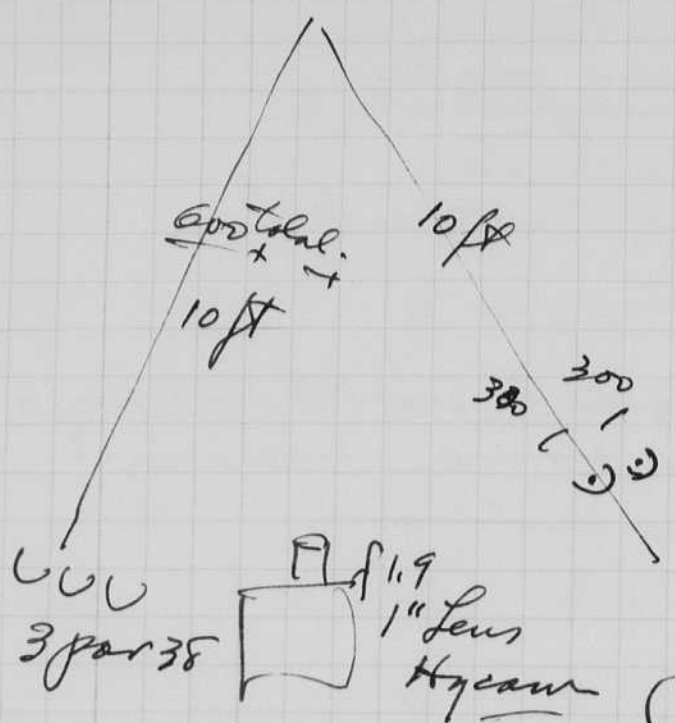 600 total.
10 ft
10 ft
300
300
3 par 38
f 1.9
1" Lens
Hycam